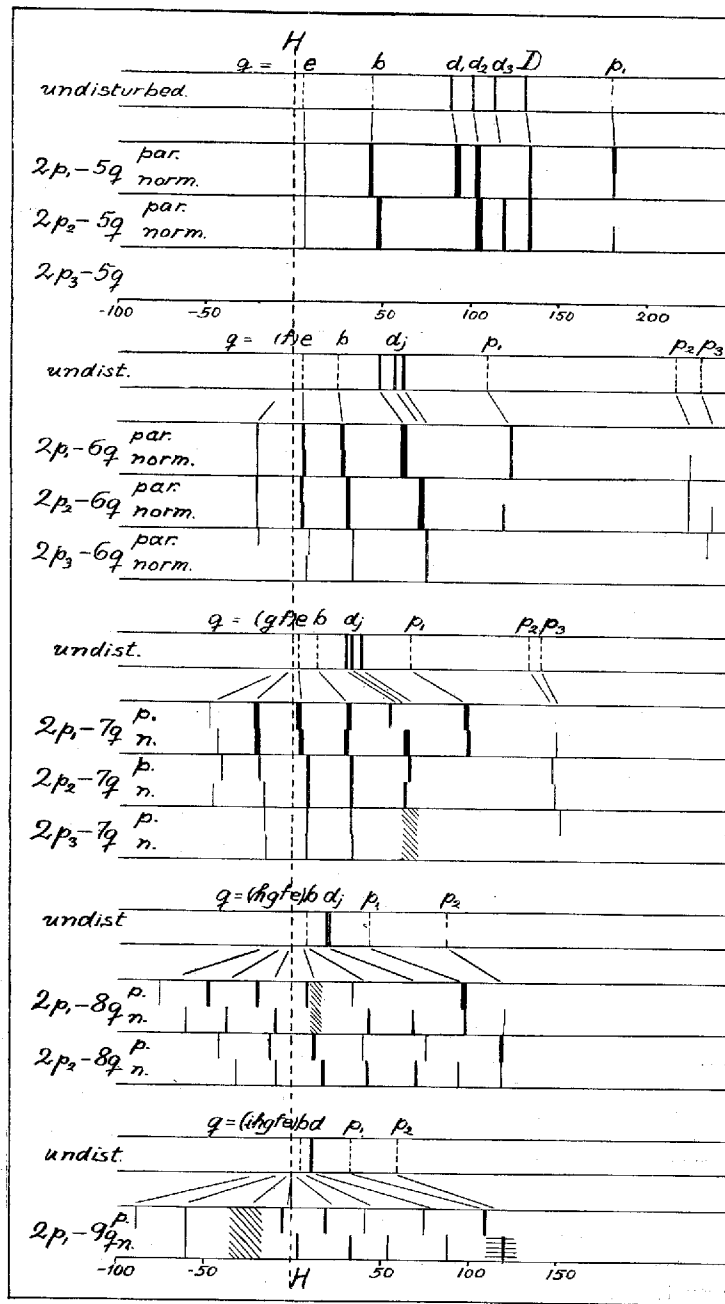 H
q = e b d₁ d₂ d₃ D p₁
undisturbed.
2p₁-5q par. norm.
2p₂-5q par. norm.
2p₃-5q
-100 -50 50 100 150 200
q = (f) e b dⱼ p₁ p₂ p₃
undist.
2p₁-6q par. norm.
2p₂-6q par. norm.
2p₃-6q par. norm.
q = (gf) e b dⱼ p₁ p₂ p₃
undist.
2p₁-7q p. n.
2p₂-7q p. n.
2p₃-7q p. n.
q = (hgfe) b dⱼ p₁ p₂
undist
2p₁-8q p. n.
2p₂-8q p. n.
q = (ihgfe) b d p₁ p₂
undist.
2p₁-9q p. n.
-100 -50 H 50 100 150